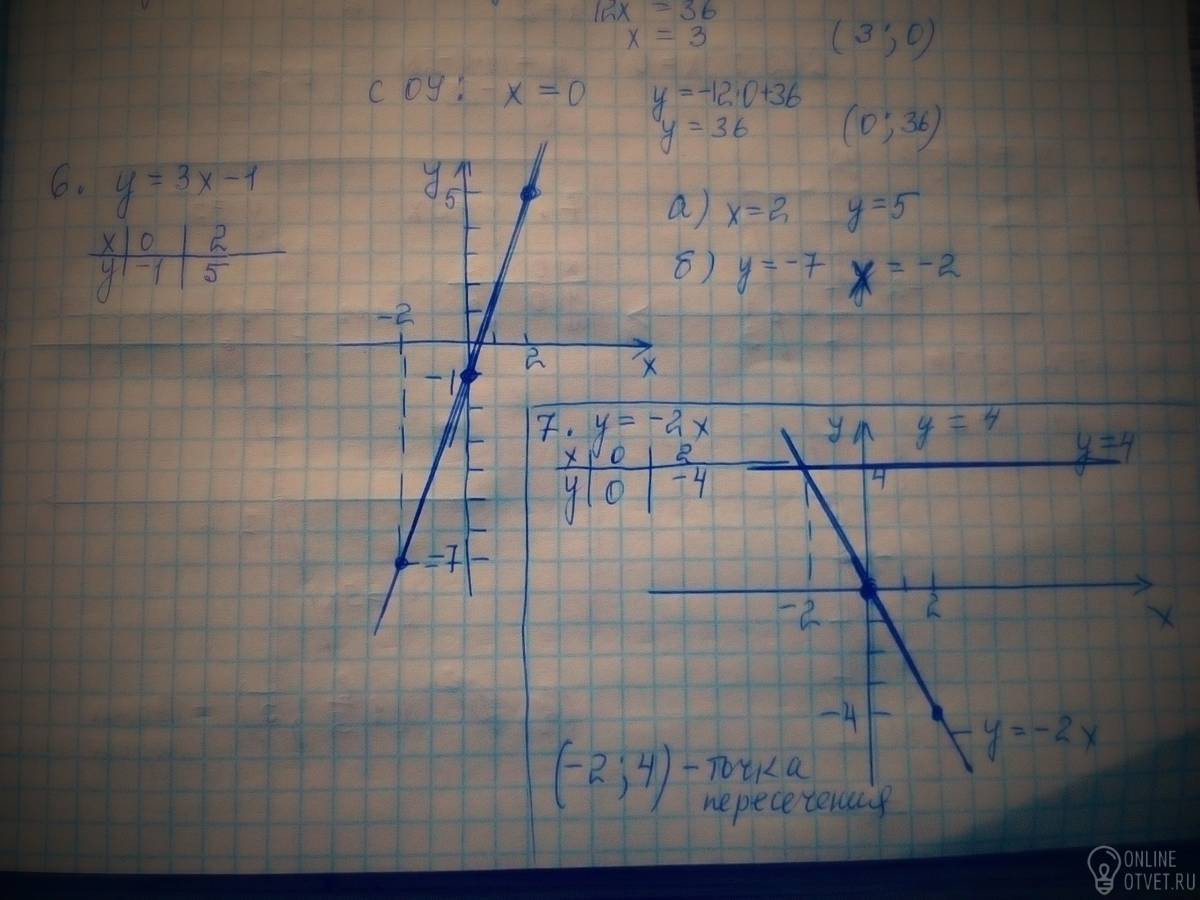 12x = 36
x = 3 (3; 0)
с ОУ: x = 0 y = -12·0+36
y = 36 (0; 36)
6. y = 3x - 1
x 0 2
y -1 5
y
5
-2
2
x
-1
-7
а) x=2 y=5
б) y=-7 x = -2
7. y = -2x
x 0 2
y 0 -4
y
y = 4
y=4
4
-2
2
x
-4
y = -2x
(-2; 4) - точка
пересечения
ONLINE
OTVET.RU